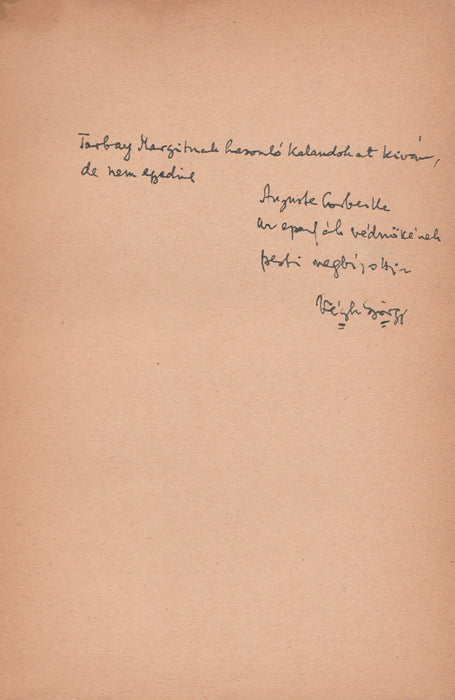 Tarbay Margitnak hasonló kalandokat kíván,
de nem egedül
Auguste Corbeille
az eperfák védnökének
pesti megbízottja
Végh György